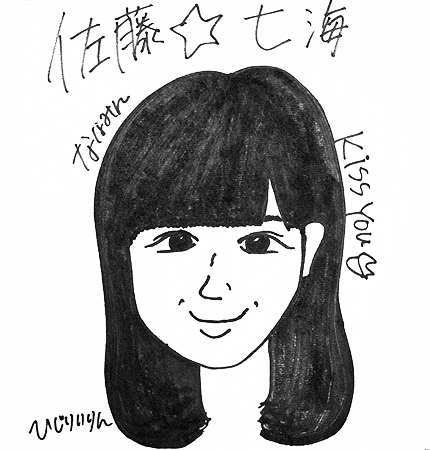 佐藤☆七海
ななみん
Kiss You
ひじりいりん